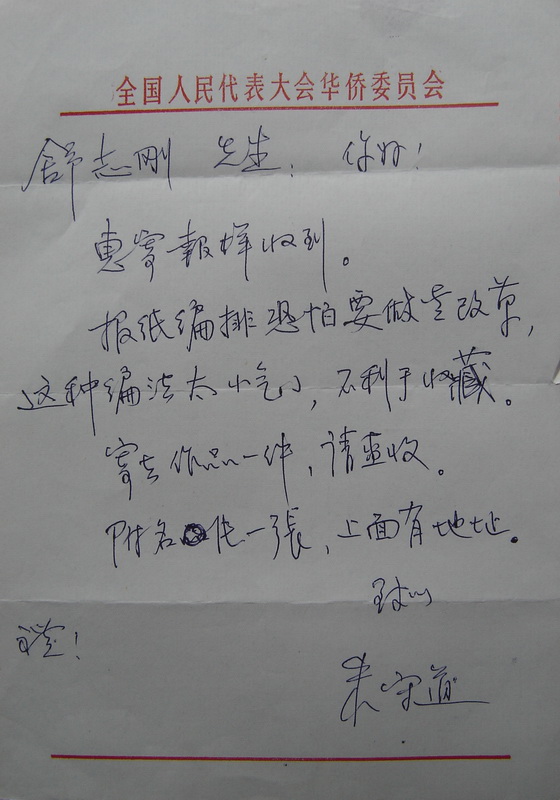 全国人民代表大会华侨委员会
舒志刚 先生：你好！
惠寄報样收到。
报纸编排恐怕要做些改革，
这种编法太小气，不利于收藏。
寄去作品一件，请查收。
附名 一張，上面有地址。
致以
礼！
守道